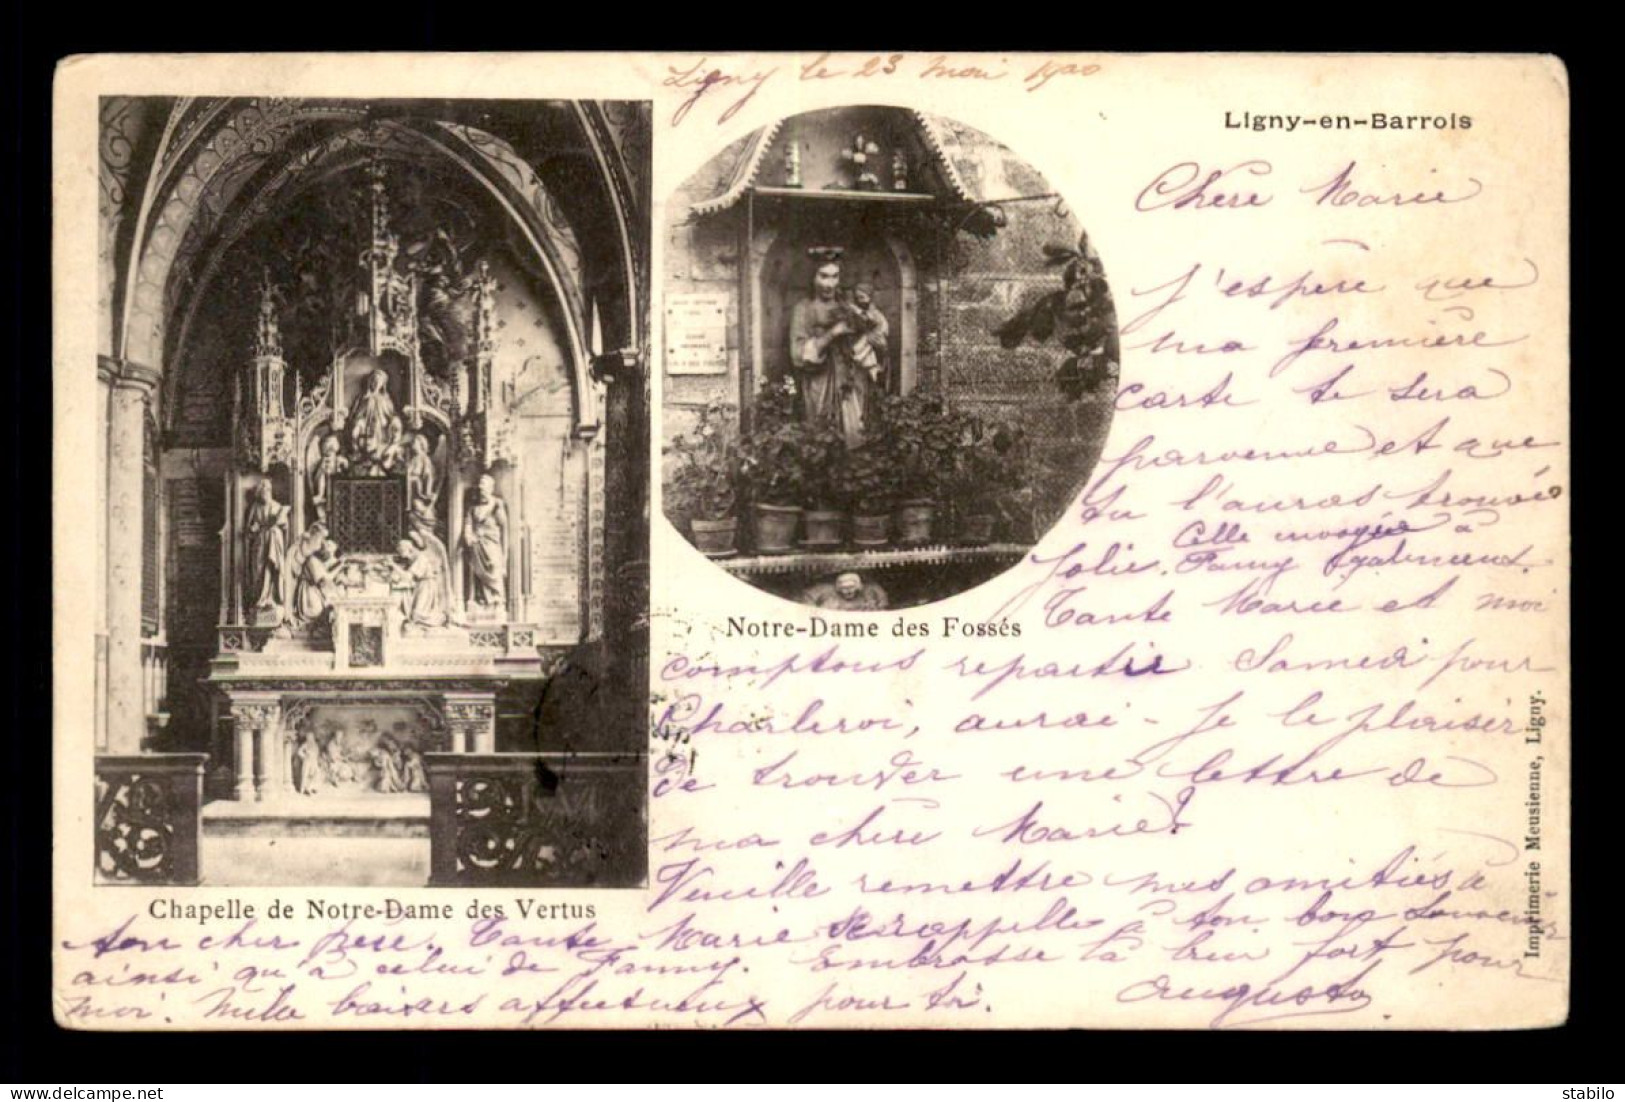 Ligny le 23 mai 1900
Ligny-en-Barrois
Chère Marie
J'espère que
ma première
carte te sera
parvenue et que
tu l'auras trouvée
Jolie. Celle envoyée à
Fanny également.
Tante Marie et moi
comptons repartir Samedi pour
Charleroi, aurai-Je le plaisir
de trouver une lettre de
ma chère Marie?
Veuille remettre mes amitiés à
ton cher père. Tante Marie se rappelle à ton bon souvenir
ainsi qu'à celui de Fanny. Embrasse la bien fort pour
moi. Mille baisers affectueux pour toi. Augusta
Notre-Dame des Fossés
Chapelle de Notre-Dame des Vertus
Imprimerie Meusienne, Ligny.
stabilo